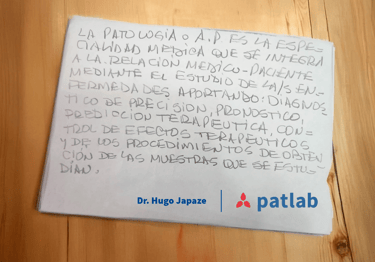 LA PATOLOGÍA O A.P ES LA ESPE-
CIALIDAD MEDICA QUE SE INTEGRA
A LA RELACION MEDICO-PACIENTE
MEDIANTE EL ESTUDIO DE LA/S EN-
FERMEDADES APORTANDO: DIAGNOS-
TICO DE PRECISION, PRONOSTICO,
PREDICCION TERAPEUTICA, CON-
TROL DE EFECTOS TERAPEUTICOS
Y DE LOS PROCEDIMIENTOS DE OBTEN-
CIÓN DE LAS MUESTRAS QUE SE ESTU-
DIAN.
Dr. Hugo Japaze patlab